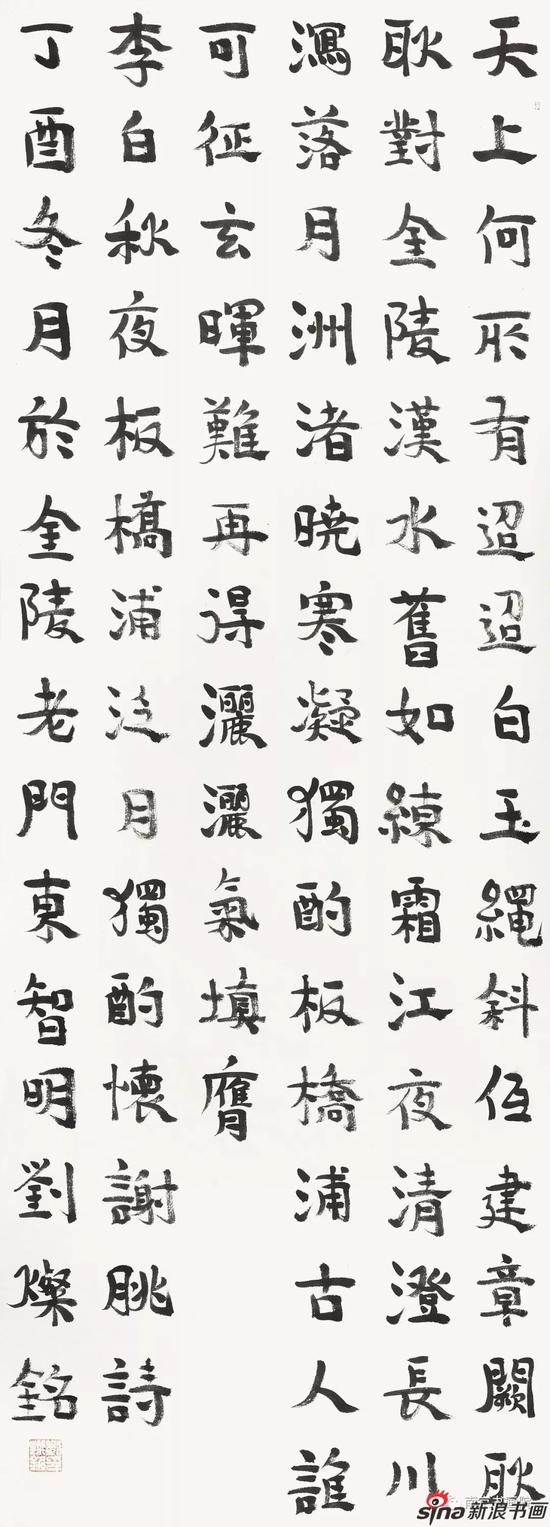 天上何所有迢迢白玉繩斜低建章闕耿
耿對金陵漢水舊如練霜江夜清澄長川
瀉落月洲渚曉寒凝獨酌板橋浦古人誰
可征玄暉難再得灑灑氣填膺
李白秋夜板橋浦泛月獨酌懷謝朓詩
丁酉冬月於金陵老門東智明劉燦銘
sina新浪书画